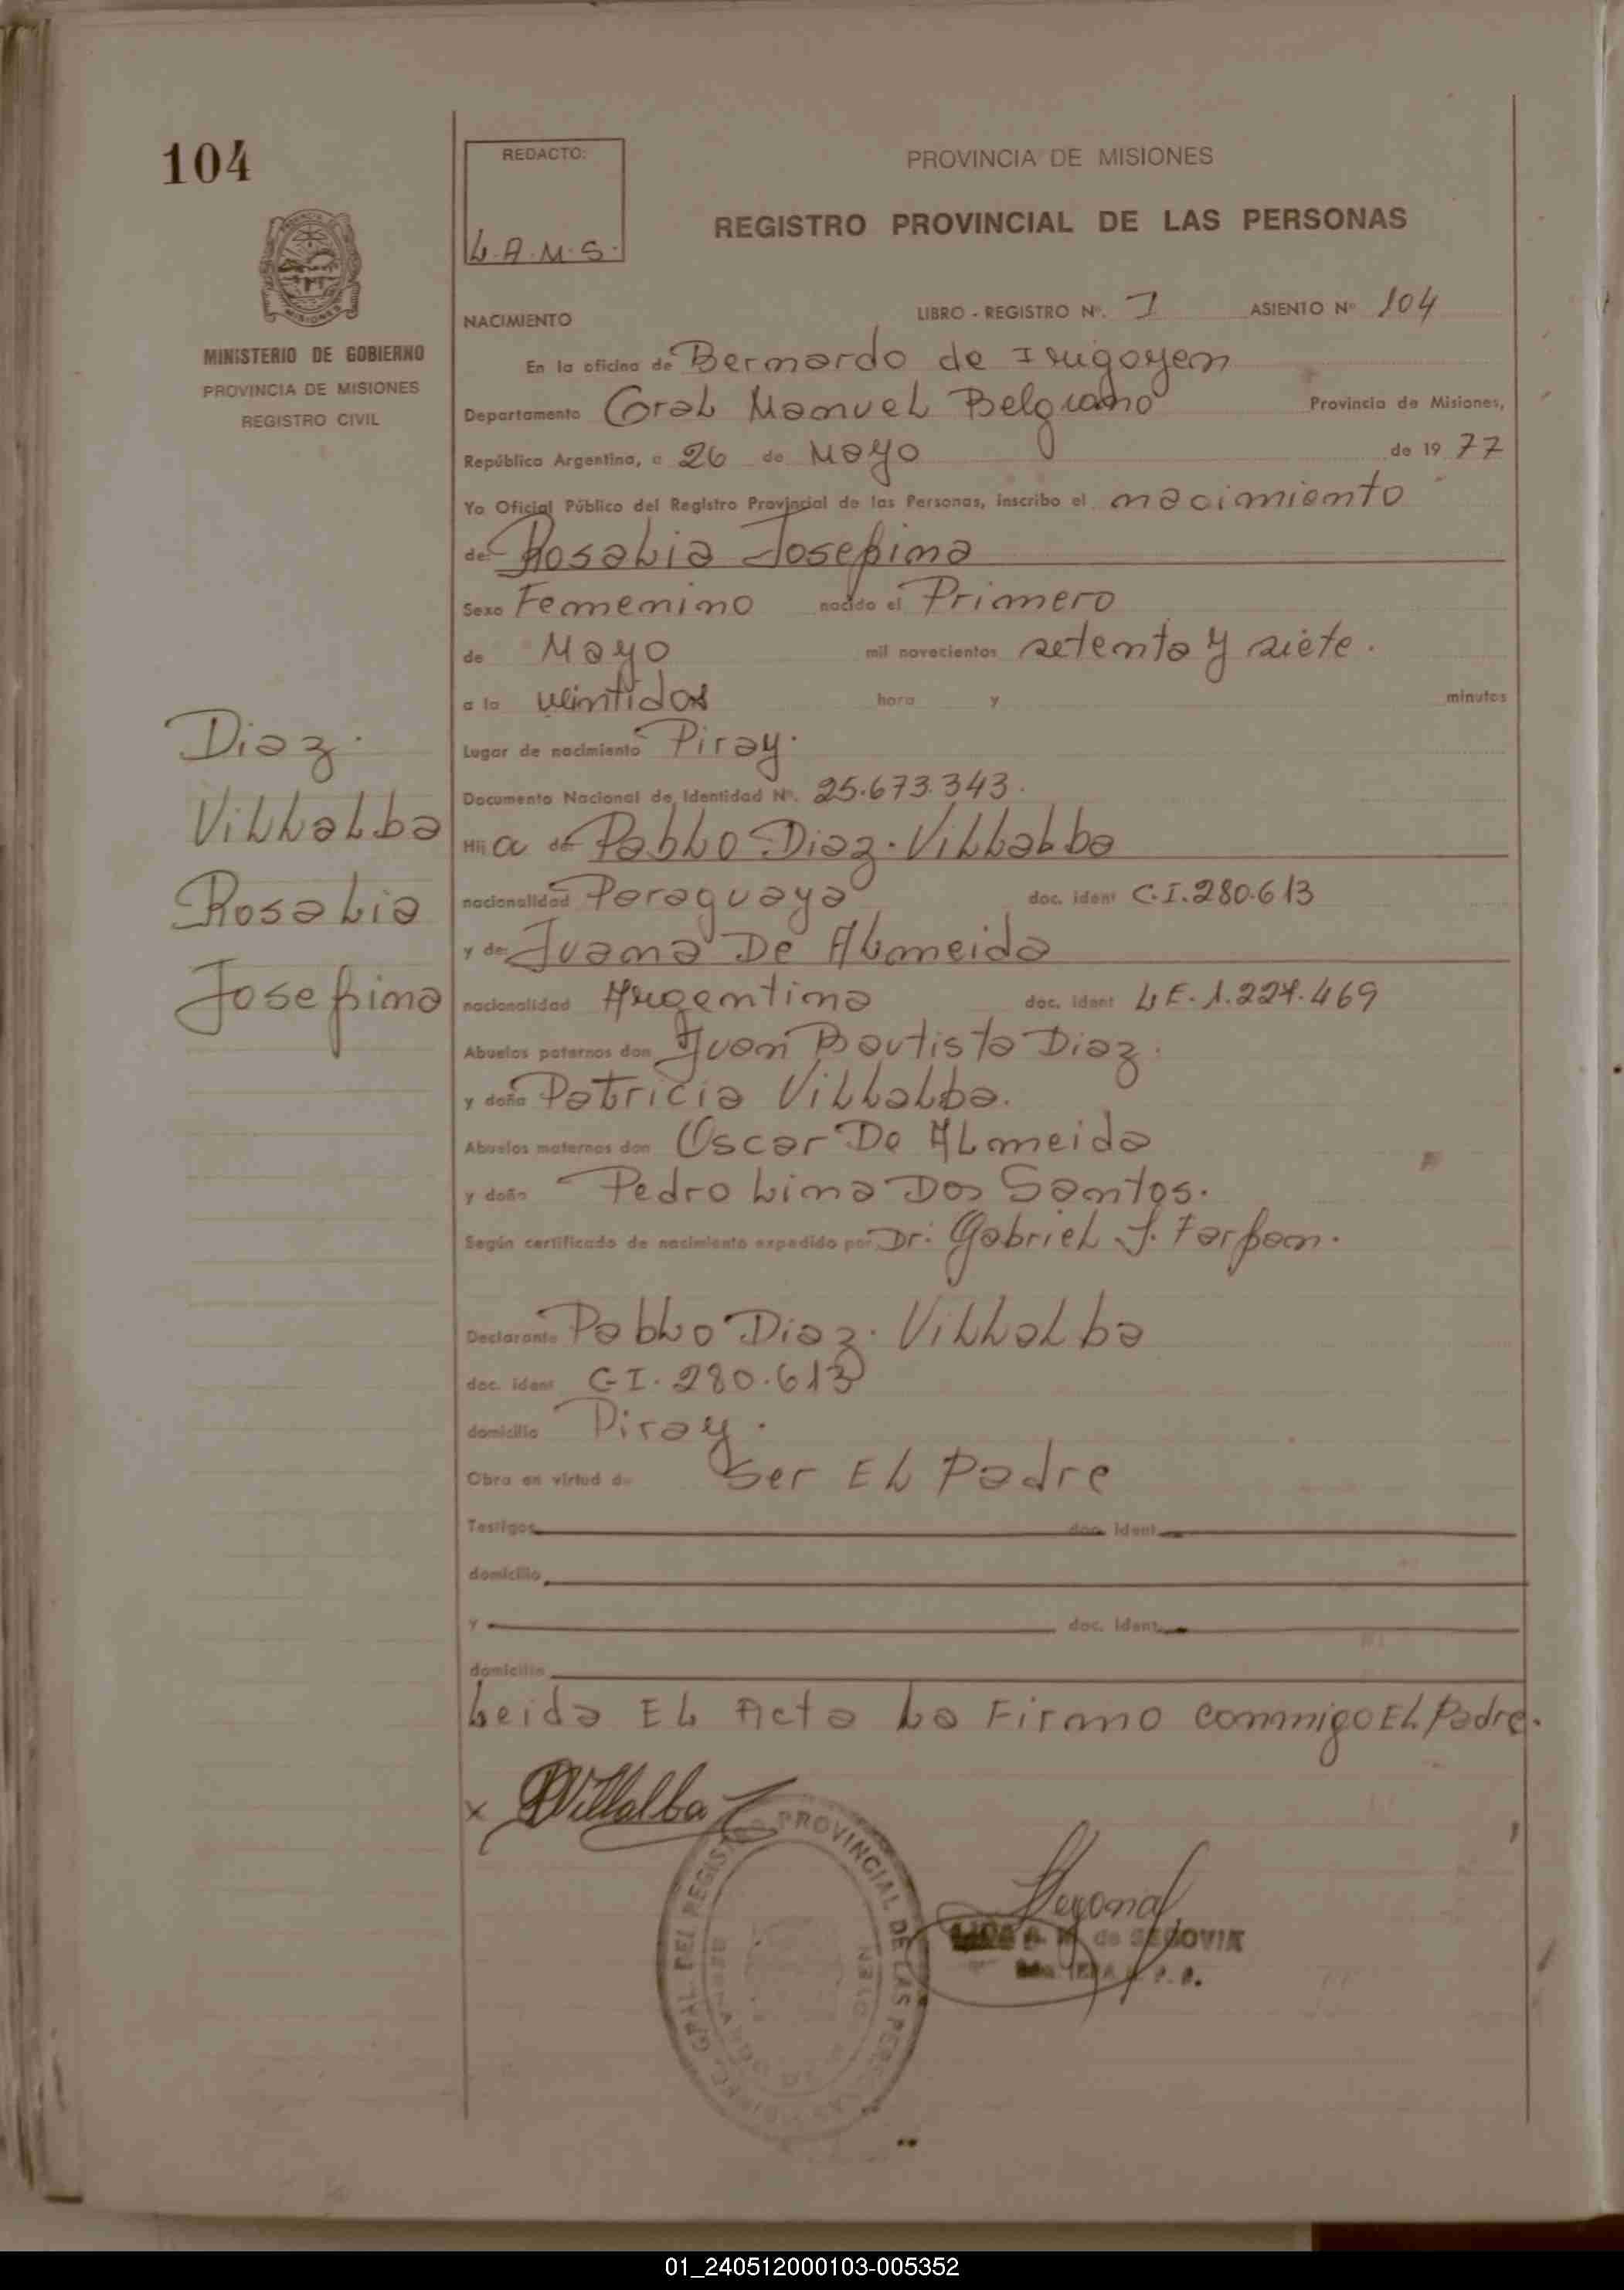 104
MINISTERIO DE GOBIERNO
PROVINCIA DE MISIONES
REGISTRO CIVIL
Diaz.
Villalba
Rosalia
Josefina
REDACTO:
L.A.M.S.
PROVINCIA DE MISIONES
REGISTRO PROVINCIAL DE LAS PERSONAS
NACIMIENTO LIBRO - REGISTRO Nº. 1 ASIENTO Nº 104
En la oficina de Bernardo de Irigoyen
Departamento Gral Manuel Belgrano Provincia de Misiones,
República Argentina, a 26 de Mayo de 19 77
Yo Oficial Público del Registro Provincial de las Personas, inscribo el nacimiento
de Rosalia Josefina
Sexo Femenino nacido el Primero
de Mayo mil novecientos setenta y siete.
a la veintidos hora y minutos
Lugar de nacimiento Piray.
Documento Nacional de Identidad Nº. 25.673.343.
Hij a de Pablo Diaz. Villalba
nacionalidad Paraguaya doc. ident C.I. 280.613
y de: Juana De Almeida
nacionalidad Argentina doc. ident L.E. 1.227.469
Abuelos paternos don Juan Bautista Diaz.
y doña Patricia Villalba.
Abuelos maternos don Oscar De Almeida
y doña Pedrolina Dos Santos.
Según certificado de nacimiento expedido por Dr. Gabriel J. Farfan.
Declarante Pablo Diaz. Villalba
doc. ident C.I. 280.613
domicilio Piray.
Obra en virtud de Ser El Padre
Testigos doc. ident
domicilio
y doc. ident
domicilio
Leida El Acta La Firmo conmigo El Padre.
x PVillalba
REGISTRO PROVINCIAL DE LAS PERSONAS
GRAL. DEL
de SEGOVIA
01_240512000103-005352